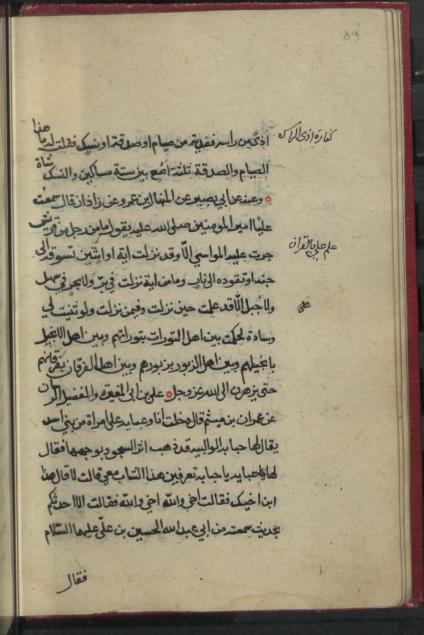 89
كفارة اذى الراس
اذًى من راسه ففدية من صيام او صدقة او نسك فقلت له ما هذا
الصيام والصدقة ثلثة اصع بين ستة مساكين والنسك شاة
وعنه عن ابي بصير عن المنهال بن عمرو عن زاذان قال سمعت
عليًا امير المؤمنين صلى الله عليه يقول ما من رجل من قريش
علم علي بالقران
جرت عليه المواسي الا وقد نزلت اية او ايتين تسوقه الى
جنة او تقوده الى نار وما من اية نزلت في بر ولا بحر في سهل
ولا جبل الا قد علمت حين نزلت وفيمن نزلت ولو ثنيت لي
وسادة لحكمت بين اهل التورات بتوراتهم وبين اهل الانجيل
بانجيلهم وبين اهل الزبور بزبورهم وبين اهل الفرقان بفرقانهم
حتى يزهرن الى الله عز وجل علي بن ابي المغيرة والمفضل
عن عمران بن ميثم قال دخلت انا وعبايه على امراة من بني اسد
يقال لها حبابه الوالبيه قد ذهب اثر السجود بوجهها فقال
لها يا حبابه تعرفين هذا الشاب معي قالت لا قال هذا
ابن اخيك فقالت اخي والله اخي والله فقالت الا احدثكم
بحديث سمعته من ابي عبد الله الحسين بن علي عليهما السلام
فقال